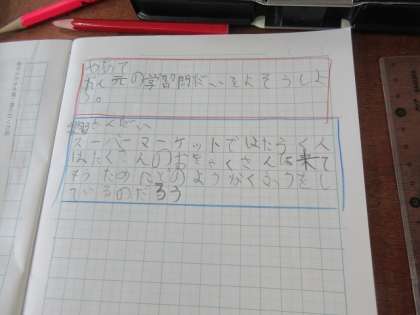 めあて
たん元の学習問だいをよそうしよ
う。
学習もんだい
スーパーマーケットではたらく人
はたくさんのおきゃくさんに来て
もらためにどのようなくふうをし
ているのだろう